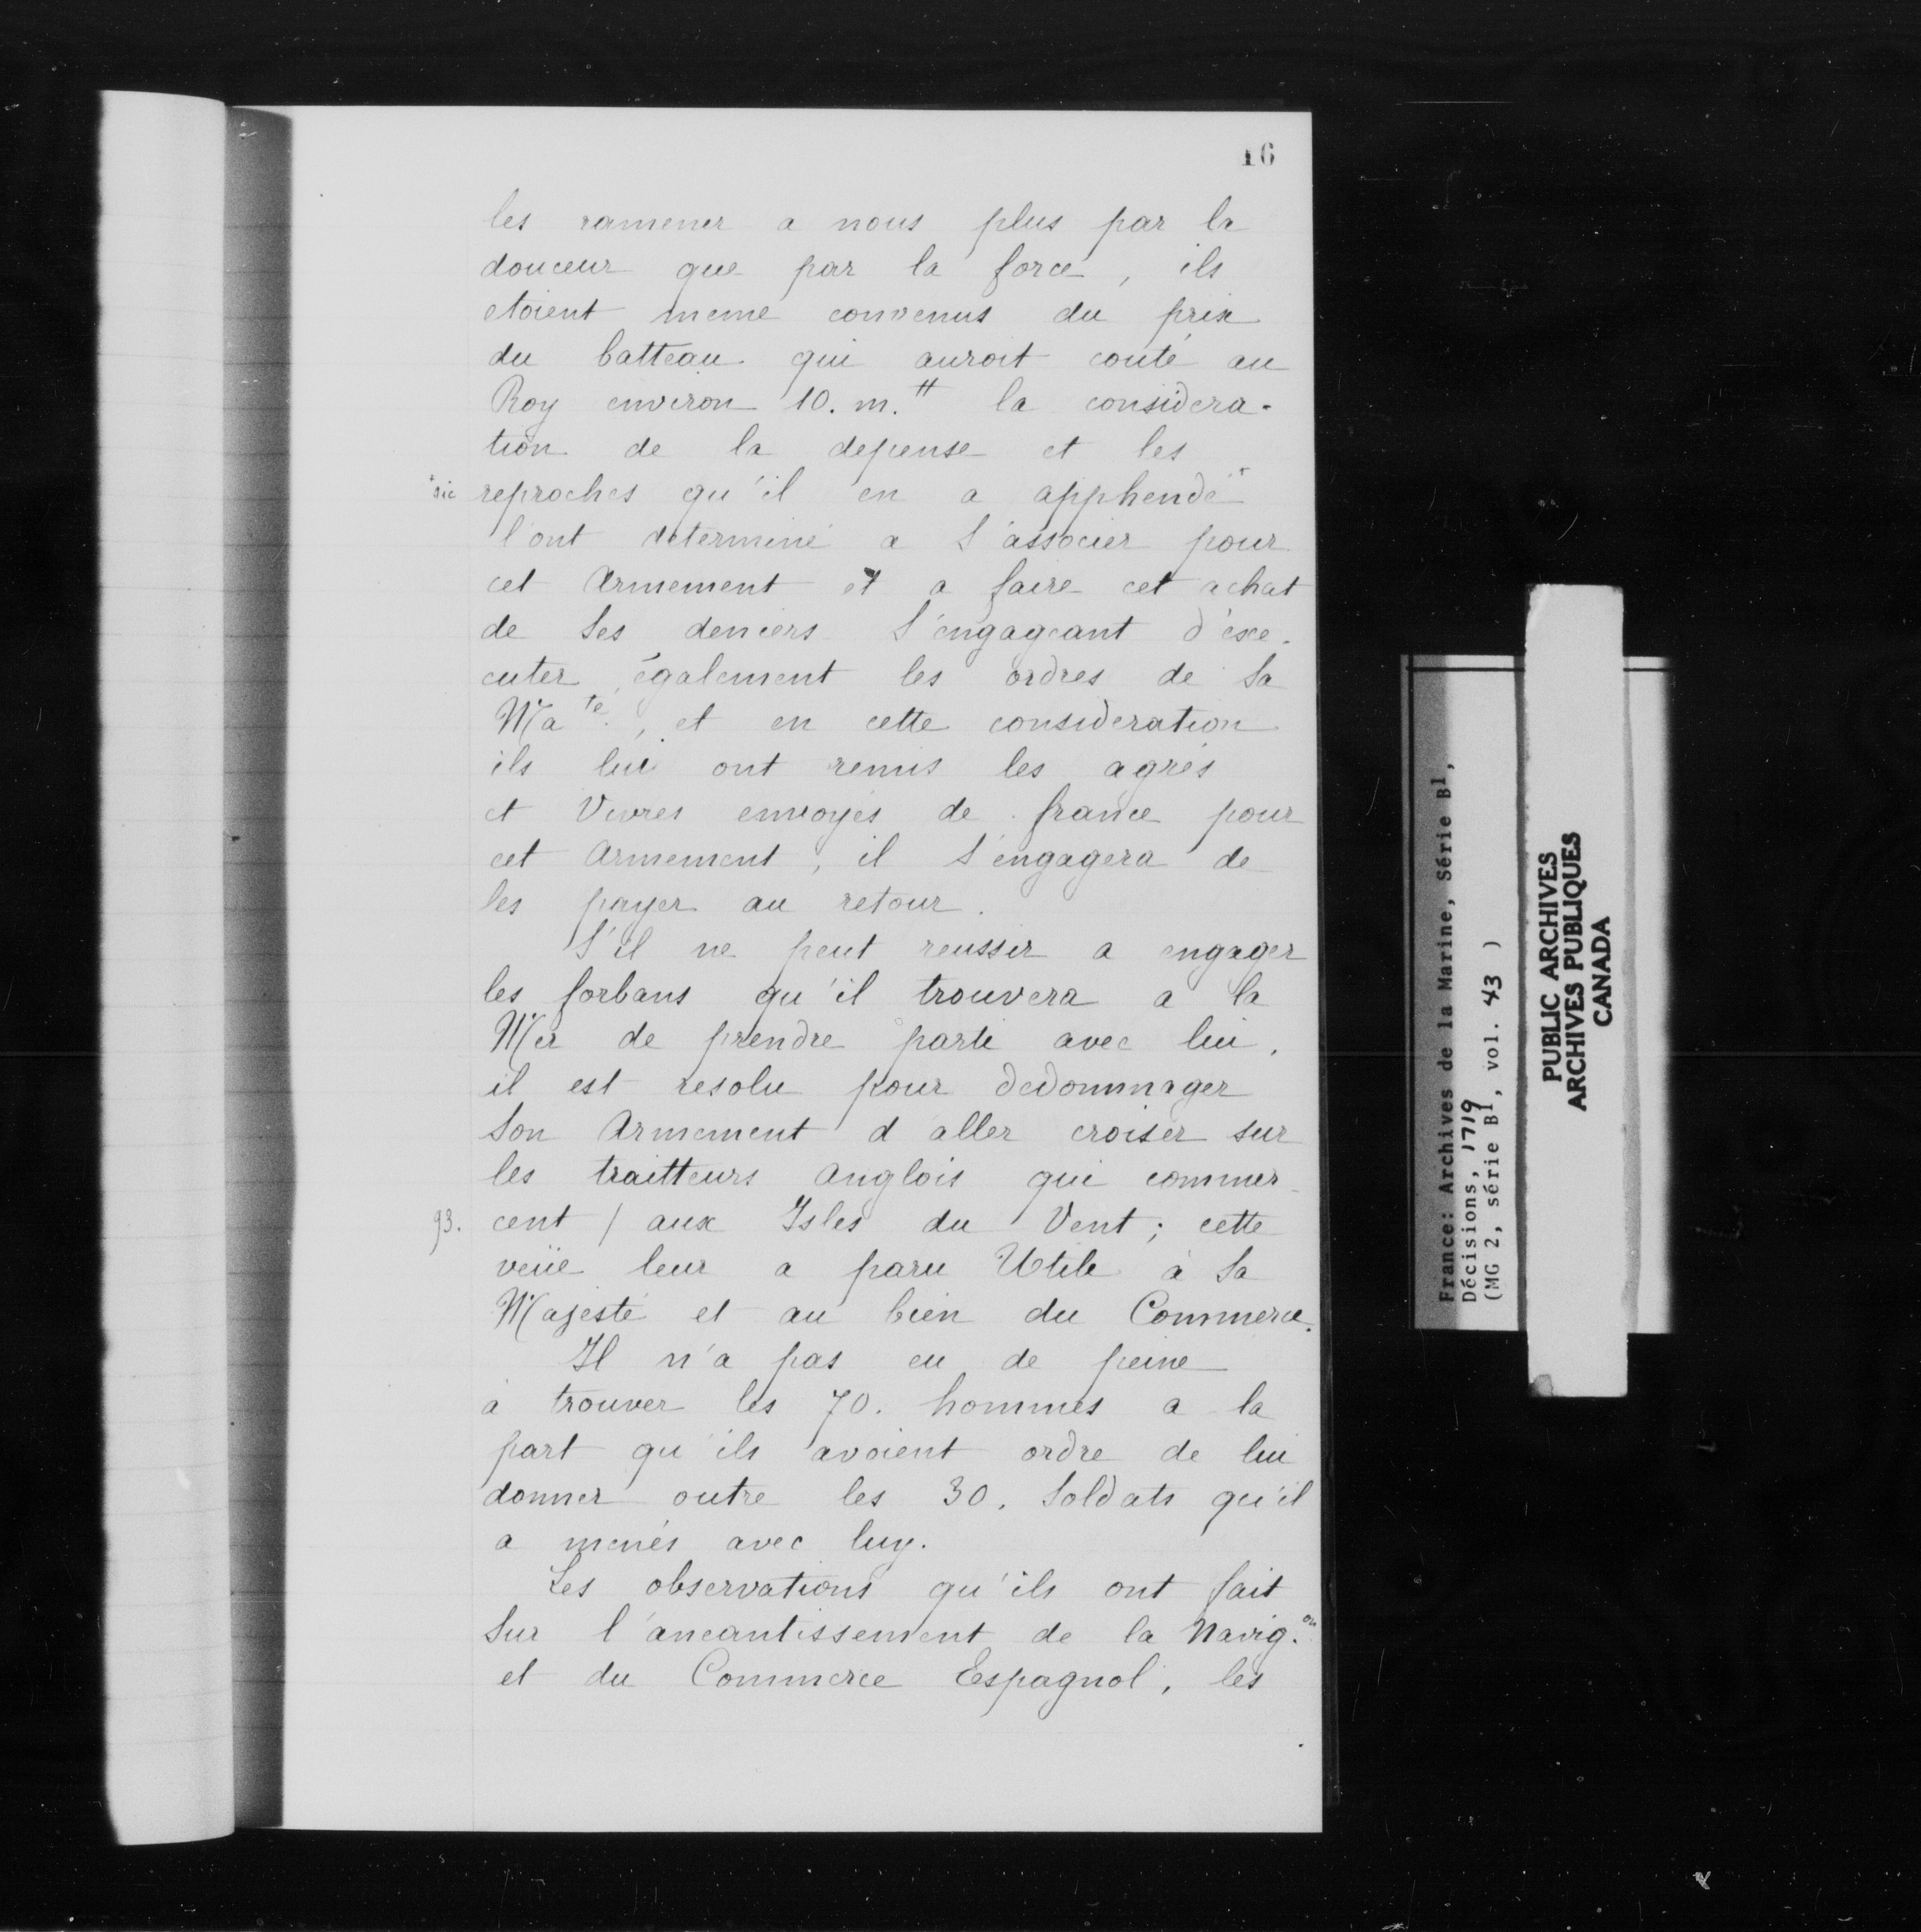 16
les ramener a nous plus par la
douceur que par la force, ils
etoient meme convenus du prix
du batteau qui auroit couté au
Roy environ 10. m.tt la considera-
tion de la depense et les
*sic reproches qu'il en a apphendé*
l'ont determiné a S'associer pour
cet Armement et a faire cet achat
de Ses deniers S'engageant d'exe-
cuter également les ordres de Sa
Ma.té, et en cette consideration
ils lui ont remis les agrés
et Vivres envoyés de france pour
cet Armement, il S'engagera de
les payer au retour.
S'il ne peut reussir a engager
les forbans qu'il trouvera a la
Mer de prendre parti avec lui,
il est resolu pour dedommager
Son Armement d'aller croiser sur
les traitteurs Anglois qui commer-
93. cent / aux Isles du Vent; cette
veüe leur a paru Utile à Sa
Majesté et au bien du Commerce.
Il n'a pas eu de peine
à trouver les 70. hommes a la
part qu'ils avoient ordre de lui
donner outre les 30. Soldats qu'il
a menés avec luy.
Les observations qu'ils ont fait
Sur l'aneantissement de la Navig.on
et du Commerce Espagnol, les
France: Archives de la Marine, Série B1,
Décisions, 1719
(MG 2, série B1, vol. 43 )
PUBLIC ARCHIVES
ARCHIVES PUBLIQUES
CANADA